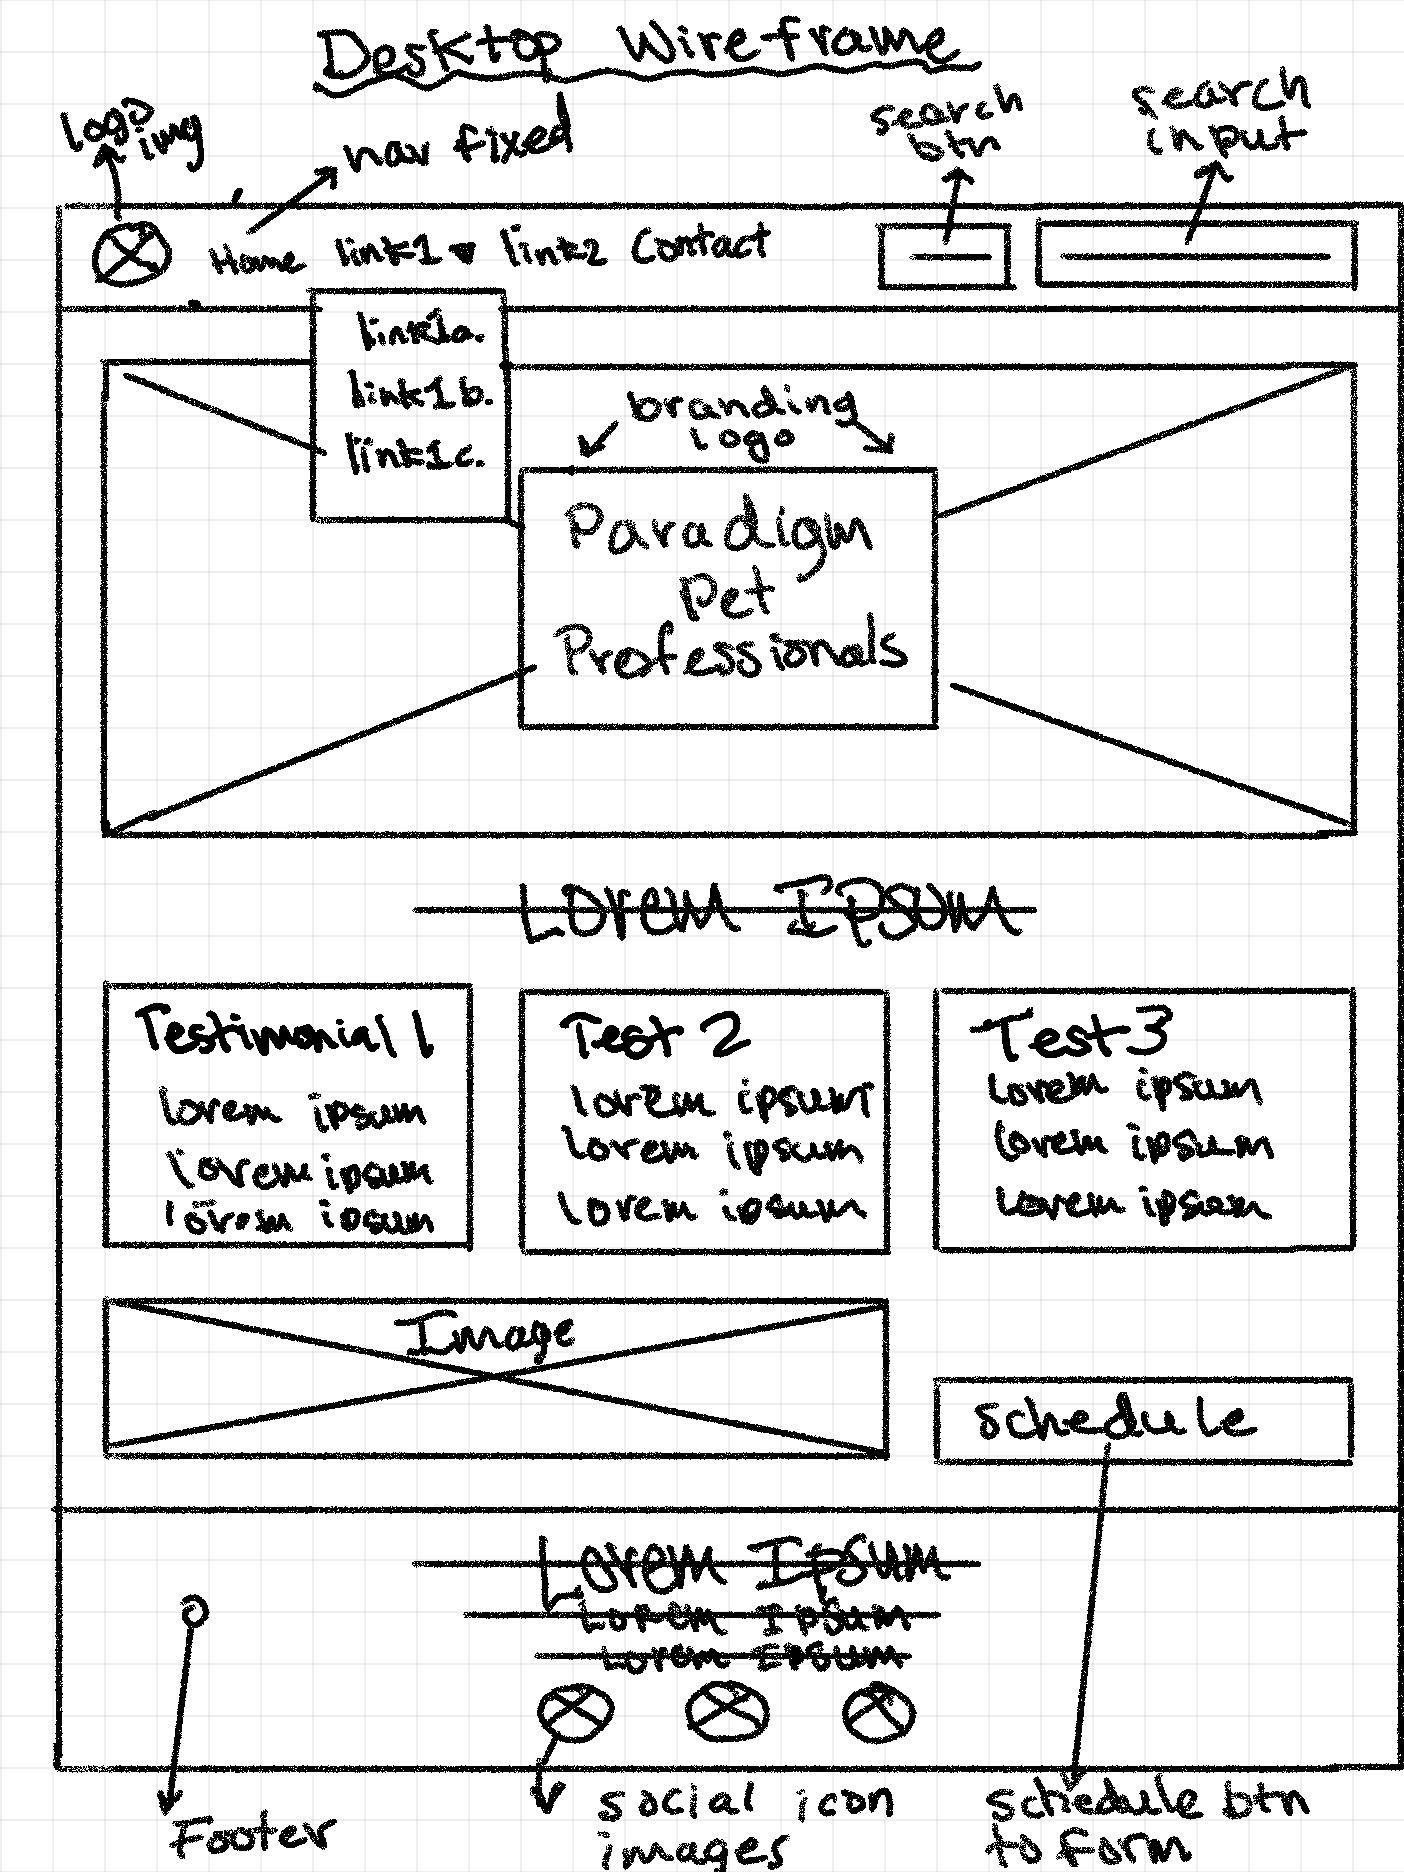 Desktop Wireframe
logo img
nav fixed
search btn
search input
Home link1 ▼ link2 Contact
link1a.
link1b.
link1c.
branding
logo
Paradigm
Pet
Professionals
Lorem Ipsum
Testimonial 1
lorem ipsum
lorem ipsum
lorem ipsum
Test 2
lorem ipsum
lorem ipsum
lorem ipsum
Test 3
lorem ipsum
lorem ipsum
lorem ipsum
Image
schedule
Lorem Ipsum
Lorem Ipsum
Lorem Ipsum
Footer
social icon
images
schedule btn
to form